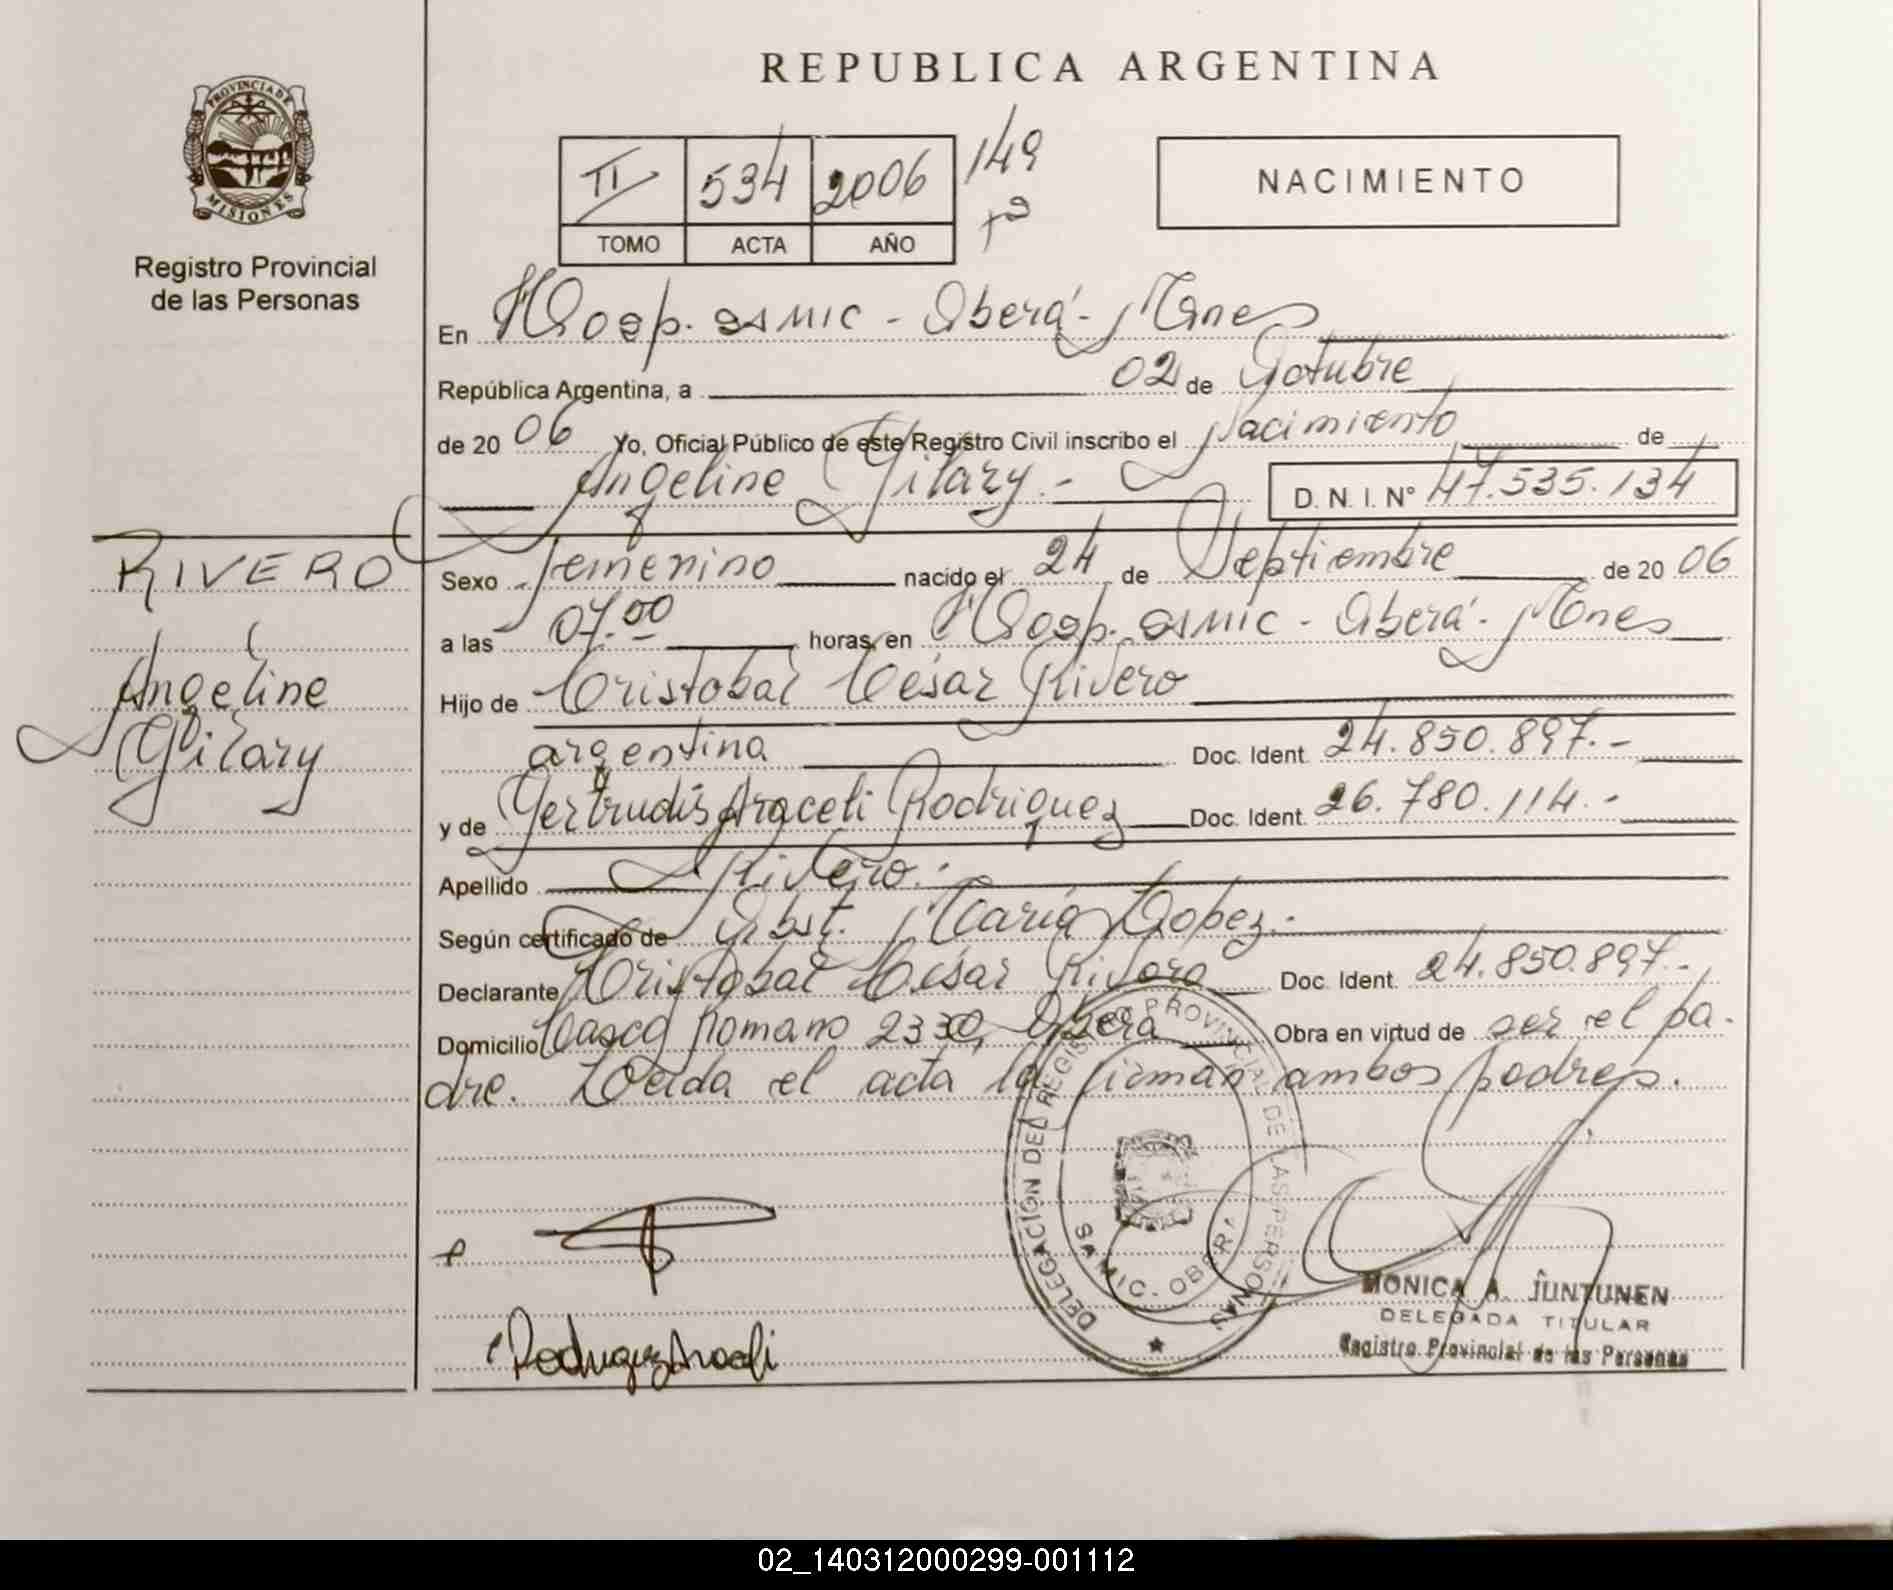 REPUBLICA ARGENTINA
PROVINCIA DE
MISIONES
Registro Provincial
de las Personas
II 534 2006 149
TOMO ACTA AÑO
Fº
NACIMIENTO
En Hosp. SAMIC - Oberá - Mnes
República Argentina, a 02 de Octubre
de 2006 Yo, Oficial Público de este Registro Civil inscribo el Nacimiento de
Angeline Gilary.- D. N. I. Nº 47.535.134
RIVERO
Angeline
Gilary
Sexo femenino nacido el 24 de Septiembre de 2006
a las 07.00 horas, en Hosp. SAMIC - Oberá - Mnes
Hijo de Cristobal César Rivero
argentina Doc. Ident. 24.850.897.-
y de Gertrudis Araceli Rodriguez Doc. Ident. 26.780.114.-
Apellido Rivero.-
Según certificado de Obst. María Lopez.-
Declarante Cristobal César Rivero Doc. Ident. 24.850.897.-
Domicilio Casco Romano 2330, Oberá Obra en virtud de ser el pa-
dre. Leida el acta la firman ambos padres.
DELEGACIÓN DEL REGISTRO PROVINCIAL DE LAS PERSONAS
SAMIC. OBERA
Rodriguez Araceli
MONICA A. JUNTUNEN
DELEGADA TITULAR
Registro Provincial de las Personas
02_140312000299-001112